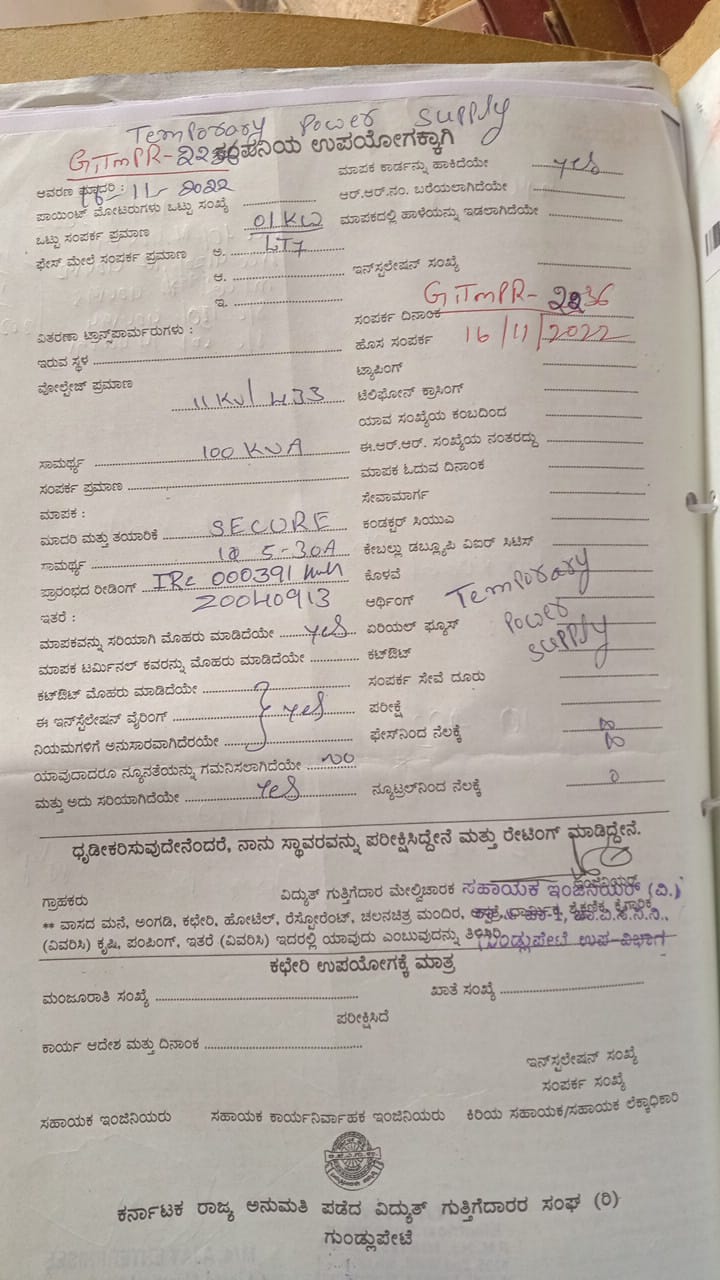 Temporary Power Supply
GTMPR-2236 ಕಂಪನಿಯ ಉಪಯೋಗಕ್ಕಾಗಿ
ಮಾಪಕ ಕಾರ್ಡನ್ನು ಹಾಕಿದೆಯೇ yes
ಆವರಣ ಮಾದರಿ : 16-11-2022
ಆರ್.ಆರ್.ನಂ. ಬರೆಯಲಾಗಿದೆಯೇ
ಪಾಯಿಂಟ್ ಮೋಟರುಗಳು ಒಟ್ಟು ಸಂಖ್ಯೆ
ಮಾಪಕದಲ್ಲಿ ಹಾಳೆಯನ್ನು ಇಡಲಾಗಿದೆಯೇ
ಒಟ್ಟು ಸಂಪರ್ಕ ಪ್ರಮಾಣ 01 KW
ಫೇಸ್ ಮೇಲೆ ಸಂಪರ್ಕ ಪ್ರಮಾಣ ಅ. LT7
ಆ.
ಇನ್‌ಸ್ಟಲೇಷನ್ ಸಂಖ್ಯೆ
ಇ.
GTMPR-2236
ವಿತರಣಾ ಟ್ರಾನ್ಸ್‌ಪಾರ್ಮರುಗಳು :
ಸಂಪರ್ಕ ದಿನಾಂಕ
ಇರುವ ಸ್ಥಳ
ಹೊಸ ಸಂಪರ್ಕ 16/11/2022
ವೋಲ್ಟೇಜ್ ಪ್ರಮಾಣ
ಟ್ಯಾಪಿಂಗ್
11 KV/433
ಟೆಲಿಫೋನ್ ಕ್ರಾಸಿಂಗ್
ಯಾವ ಸಂಖ್ಯೆಯ ಕಂಬದಿಂದ
ಸಾಮರ್ಥ್ಯ 100 KVA
ಈ.ಆರ್.ಆರ್. ಸಂಖ್ಯೆಯ ನಂತರದ್ದು
ಸಂಪರ್ಕ ಪ್ರಮಾಣ
ಮಾಪಕ ಓದುವ ದಿನಾಂಕ
ಮಾಪಕ :
ಸೇವಾಮಾರ್ಗ
ಮಾದರಿ ಮತ್ತು ತಯಾರಿಕೆ SECURE
ಕಂಡಕ್ಟರ್ ಸಿಯುಎ
ಸಾಮರ್ಥ್ಯ 5-30A
ಕೇಬಲ್ಲು ಡಬ್ಲ್ಯೂಪಿ ವಿಐರ್ ಸಿಟಿಸ್
ಪ್ರಾರಂಭದ ರೀಡಿಂಗ್ IRe 000391 kwh
ಕೊಳವೆ
ಇತರೆ : 20040913
ಆರ್ಥಿಂಗ್ Temporary
ಮಾಪಕವನ್ನು ಸರಿಯಾಗಿ ಮೊಹರು ಮಾಡಿದೆಯೇ yes
ಏರಿಯಲ್ ಫ್ಯೂಸ್ Power
ಮಾಪಕ ಟರ್ಮಿನಲ್ ಕವರನ್ನು ಮೊಹರು ಮಾಡಿದೆಯೇ
ಕಟ್‌ಔಟ್ Supply
ಕಟ್‌ಔಟ್ ಮೊಹರು ಮಾಡಿದೆಯೇ
ಸಂಪರ್ಕ ಸೇವೆ ದೂರು
ಈ ಇನ್‌ಸ್ಟಲೇಷನ್ ವೈರಿಂಗ್ yes
ಪರೀಕ್ಷೆ
ನಿಯಮಗಳಿಗೆ ಅನುಸಾರವಾಗಿದೆರಯೇ
ಫೇಸ್‌ನಿಂದ ನೆಲಕ್ಕೆ
ಯಾವುದಾದರೂ ನ್ಯೂನತೆಯನ್ನು ಗಮನಿಸಲಾಗಿದೆಯೇ no
ಮತ್ತು ಅದು ಸರಿಯಾಗಿದೆಯೇ yes
ನ್ಯೂಟ್ರಲ್‌ನಿಂದ ನೆಲಕ್ಕೆ 0
ಧೃಡೀಕರಿಸುವುದೇನೆಂದರೆ, ನಾನು ಸ್ಥಾವರವನ್ನು ಪರೀಕ್ಷಿಸಿದ್ದೇನೆ ಮತ್ತು ರೇಟಿಂಗ್ ಮಾಡಿದ್ದೇನೆ.
ಗ್ರಾಹಕರು ವಿದ್ಯುತ್ ಗುತ್ತಿಗೆದಾರ ಮೇಲ್ವಿಚಾರಕ ಸಹಾಯಕ ಇಂಜಿನಿಯರ್ (ವಿ.)
** ವಾಸದ ಮನೆ, ಅಂಗಡಿ, ಕಛೇರಿ, ಹೋಟೆಲ್, ರೆಸ್ಟೋರೆಂಟ್, ಚಲನಚಿತ್ರ ಮಂದಿರ, ಚಾ.ವಿ.ಸ.ನಿ.ನಿ.,
(ವಿವರಿಸಿ) ಕೃಷಿ, ಪಂಪಿಂಗ್, ಇತರೆ (ವಿವರಿಸಿ) ಇದರಲ್ಲಿ ಯಾವುದು ಎಂಬುವುದನ್ನು ತಿಳಿಸಿರಿ ಗುಂಡ್ಲುಪೇಟೆ ಉಪ-ವಿಭಾಗ
ಕಛೇರಿ ಉಪಯೋಗಕ್ಕೆ ಮಾತ್ರ
ಮಂಜೂರಾತಿ ಸಂಖ್ಯೆ ಖಾತೆ ಸಂಖ್ಯೆ
ಪರೀಕ್ಷಿಸಿದೆ
ಕಾರ್ಯ ಆದೇಶ ಮತ್ತು ದಿನಾಂಕ
ಇನ್‌ಸ್ಟಲೇಷನ್ ಸಂಖ್ಯೆ
ಸಂಪರ್ಕ ಸಂಖ್ಯೆ
ಸಹಾಯಕ ಇಂಜಿನಿಯರು ಸಹಾಯಕ ಕಾರ್ಯನಿರ್ವಾಹಕ ಇಂಜಿನಿಯರು ಕಿರಿಯ ಸಹಾಯಕ/ಸಹಾಯಕ ಲೆಕ್ಕಾಧಿಕಾರಿ
ಕರ್ನಾಟಕ ರಾಜ್ಯ ಅನುಮತಿ ಪಡೆದ ವಿದ್ಯುತ್ ಗುತ್ತಿಗೆದಾರರ ಸಂಘ (ರಿ)
ಗುಂಡ್ಲುಪೇಟೆ